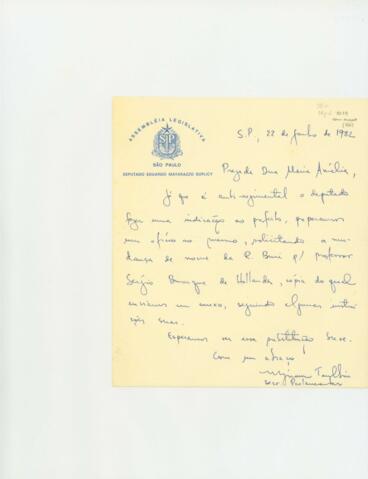 ASSEMBLÉIA LEGISLATIVA
SÃO PAULO
DEPUTADO EDUARDO MATARAZZO SUPLICY
S.P., 22 de junho de 1982
Prezada Dna Maria Amélia,
Já que é anti-regimental o deputado
fazer uma indicação ao prefeito, preparamos
um ofício ao mesmo, solicitando a mu-
dança de nome da R. Buri p/ professor
Sérgio Buarque de Hollanda, cópia do qual
enviamos em anexo, seguindo algumas instru
ções suas.
Esperamos ver essa substituição breve.
Com um abraço!